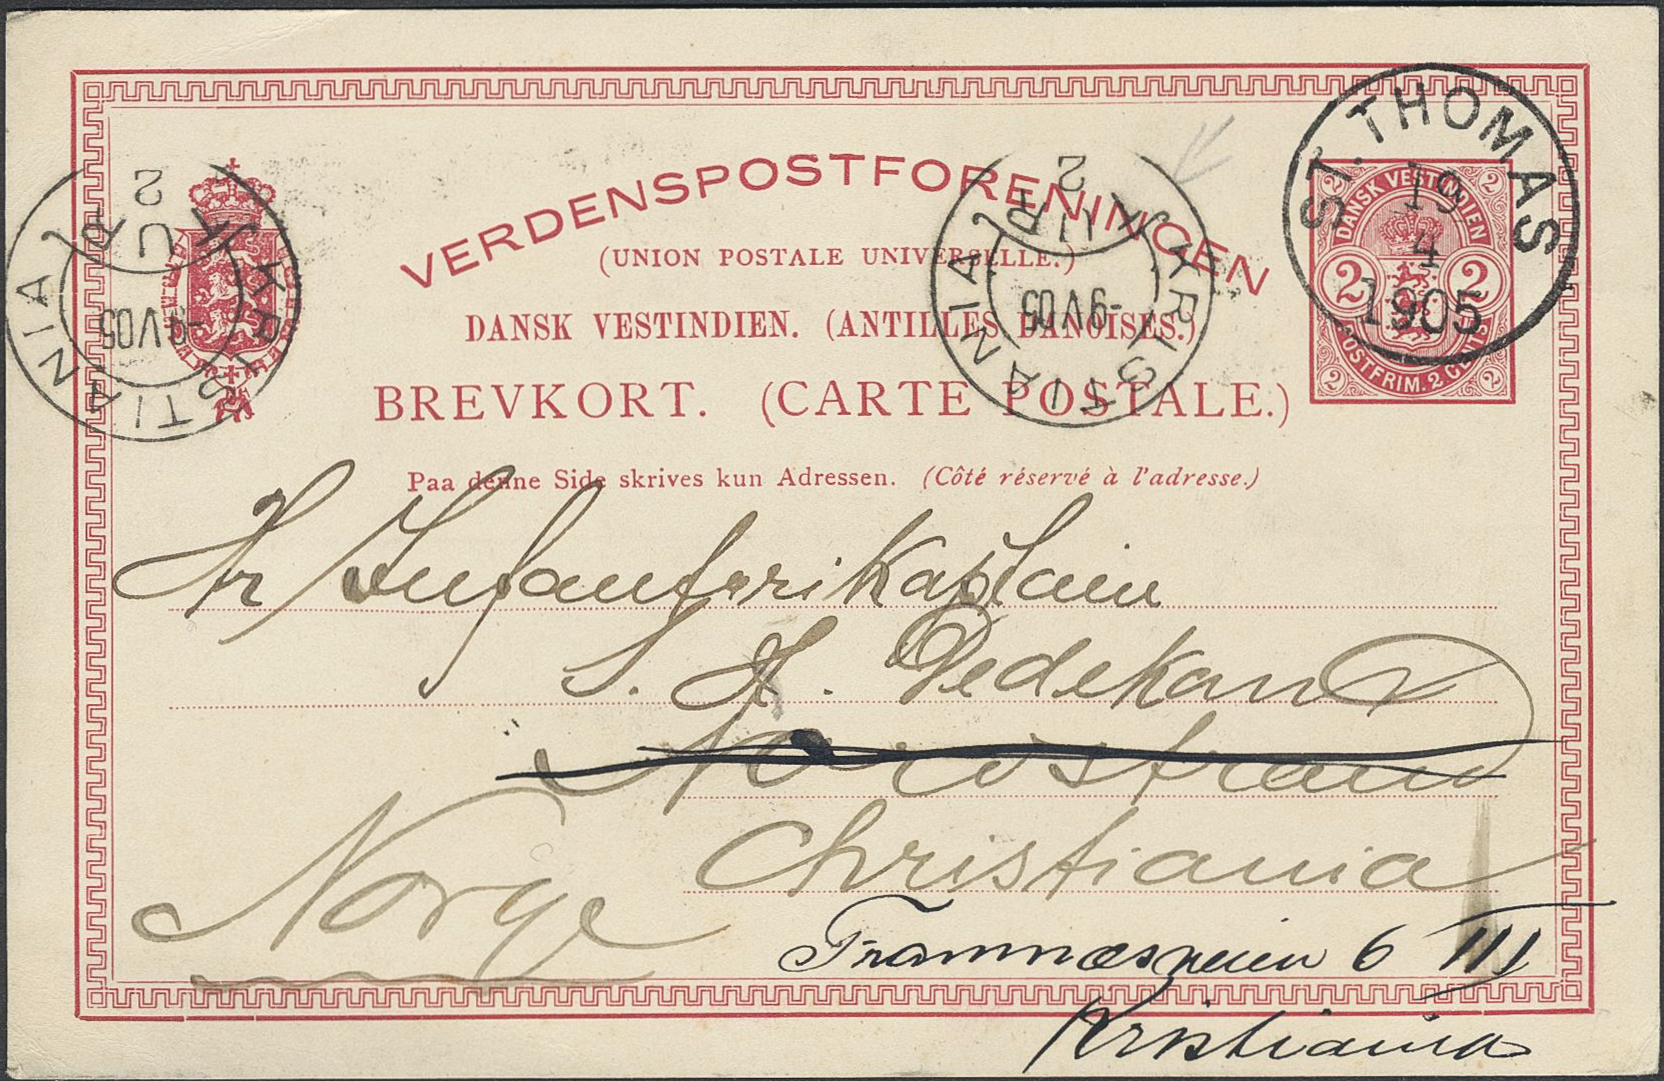 VERDENSPOSTFORENINGEN
(UNION POSTALE UNIVERSELLE.)
DANSK VESTINDIEN. (ANTILLES DANOISES.)
BREVKORT. (CARTE POSTALE.)
Paa denne Side skrives kun Adressen. (Côté réservé à l'adresse.)
ST. THOMAS
19
4
1905
DANSK VESTINDIEN
2 2
POSTFRIM. 2 CENTS
KRISTIANIA
-9 V 05
2
KRISTIANIA
-9 V 05
2
Hr Infanterikaptain
S. H. Dedekam
Nordstrand
Christiania
Norge
Framnæsveien 6 III
Kristiania